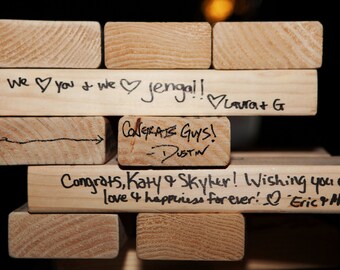 We ♡ you & we ♡ jenga!!
♡ Laura & G
CONGRATS GUYS!
- DUSTIN
Congrats, Katy & Skyler! Wishing you
love & happiness forever! ♡ Eric &